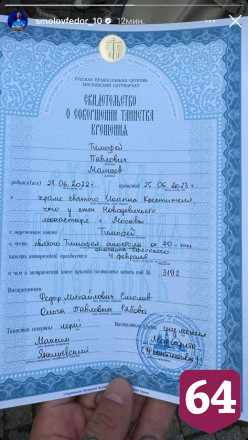 smolovfedor_10 12мин.
РУССКАЯ ПРАВОСЛАВНАЯ ЦЕРКОВЬ
МОСКОВСКИЙ ПАТРИАРХАТ
СВИДЕТЕЛЬСТВО
О СОВЕРШЕНИИ ТАИНСТВА
КРЕЩЕНИЯ
Тимофей
Павлович
Мамаев
родился(ась) 21.06.2022г. крещен(а) 25.06.2023г.
в храме святого Иоанна Крестителя,
что у стен Новодевичьего
монастыря г. Москвы
с наречением имени Тимофей
в честь святого Тимофея, апостола от 70-ти
память которого празднуется 4 февраля
о чем в метрической книге храма сделана запись под № 3192
Восприемники
Федор Михайлович Смолов
Ольга Павловна
Таинство совершил иерей
Максим
Настоятель
64